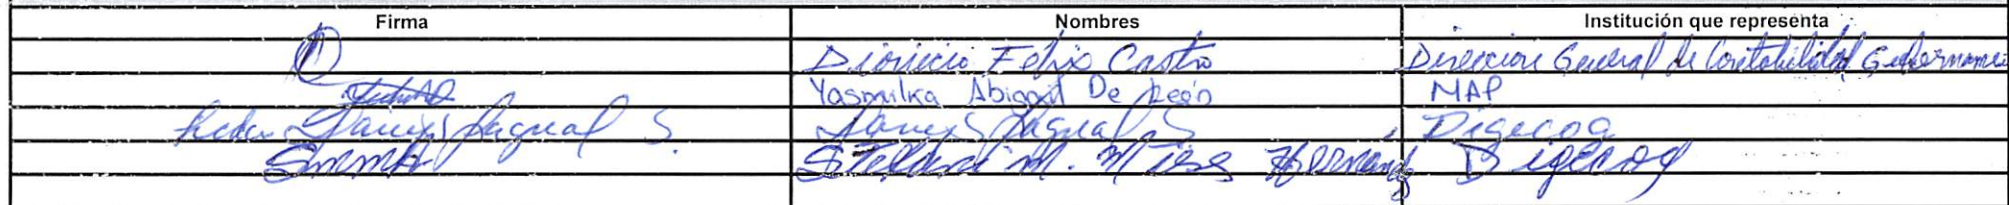 Firma Nombres Institución que representa
Dionicio Félix Castro Direccion General de Contabilidad Gubernamen
Yasmilka Abigail De León MAP
Pascual S. Pascual S Digecog
M. Hernandez Digecog